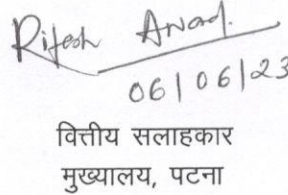 Ritesh Anand.
06/06/23
वित्तीय सलाहकार
मुख्यालय, पटना